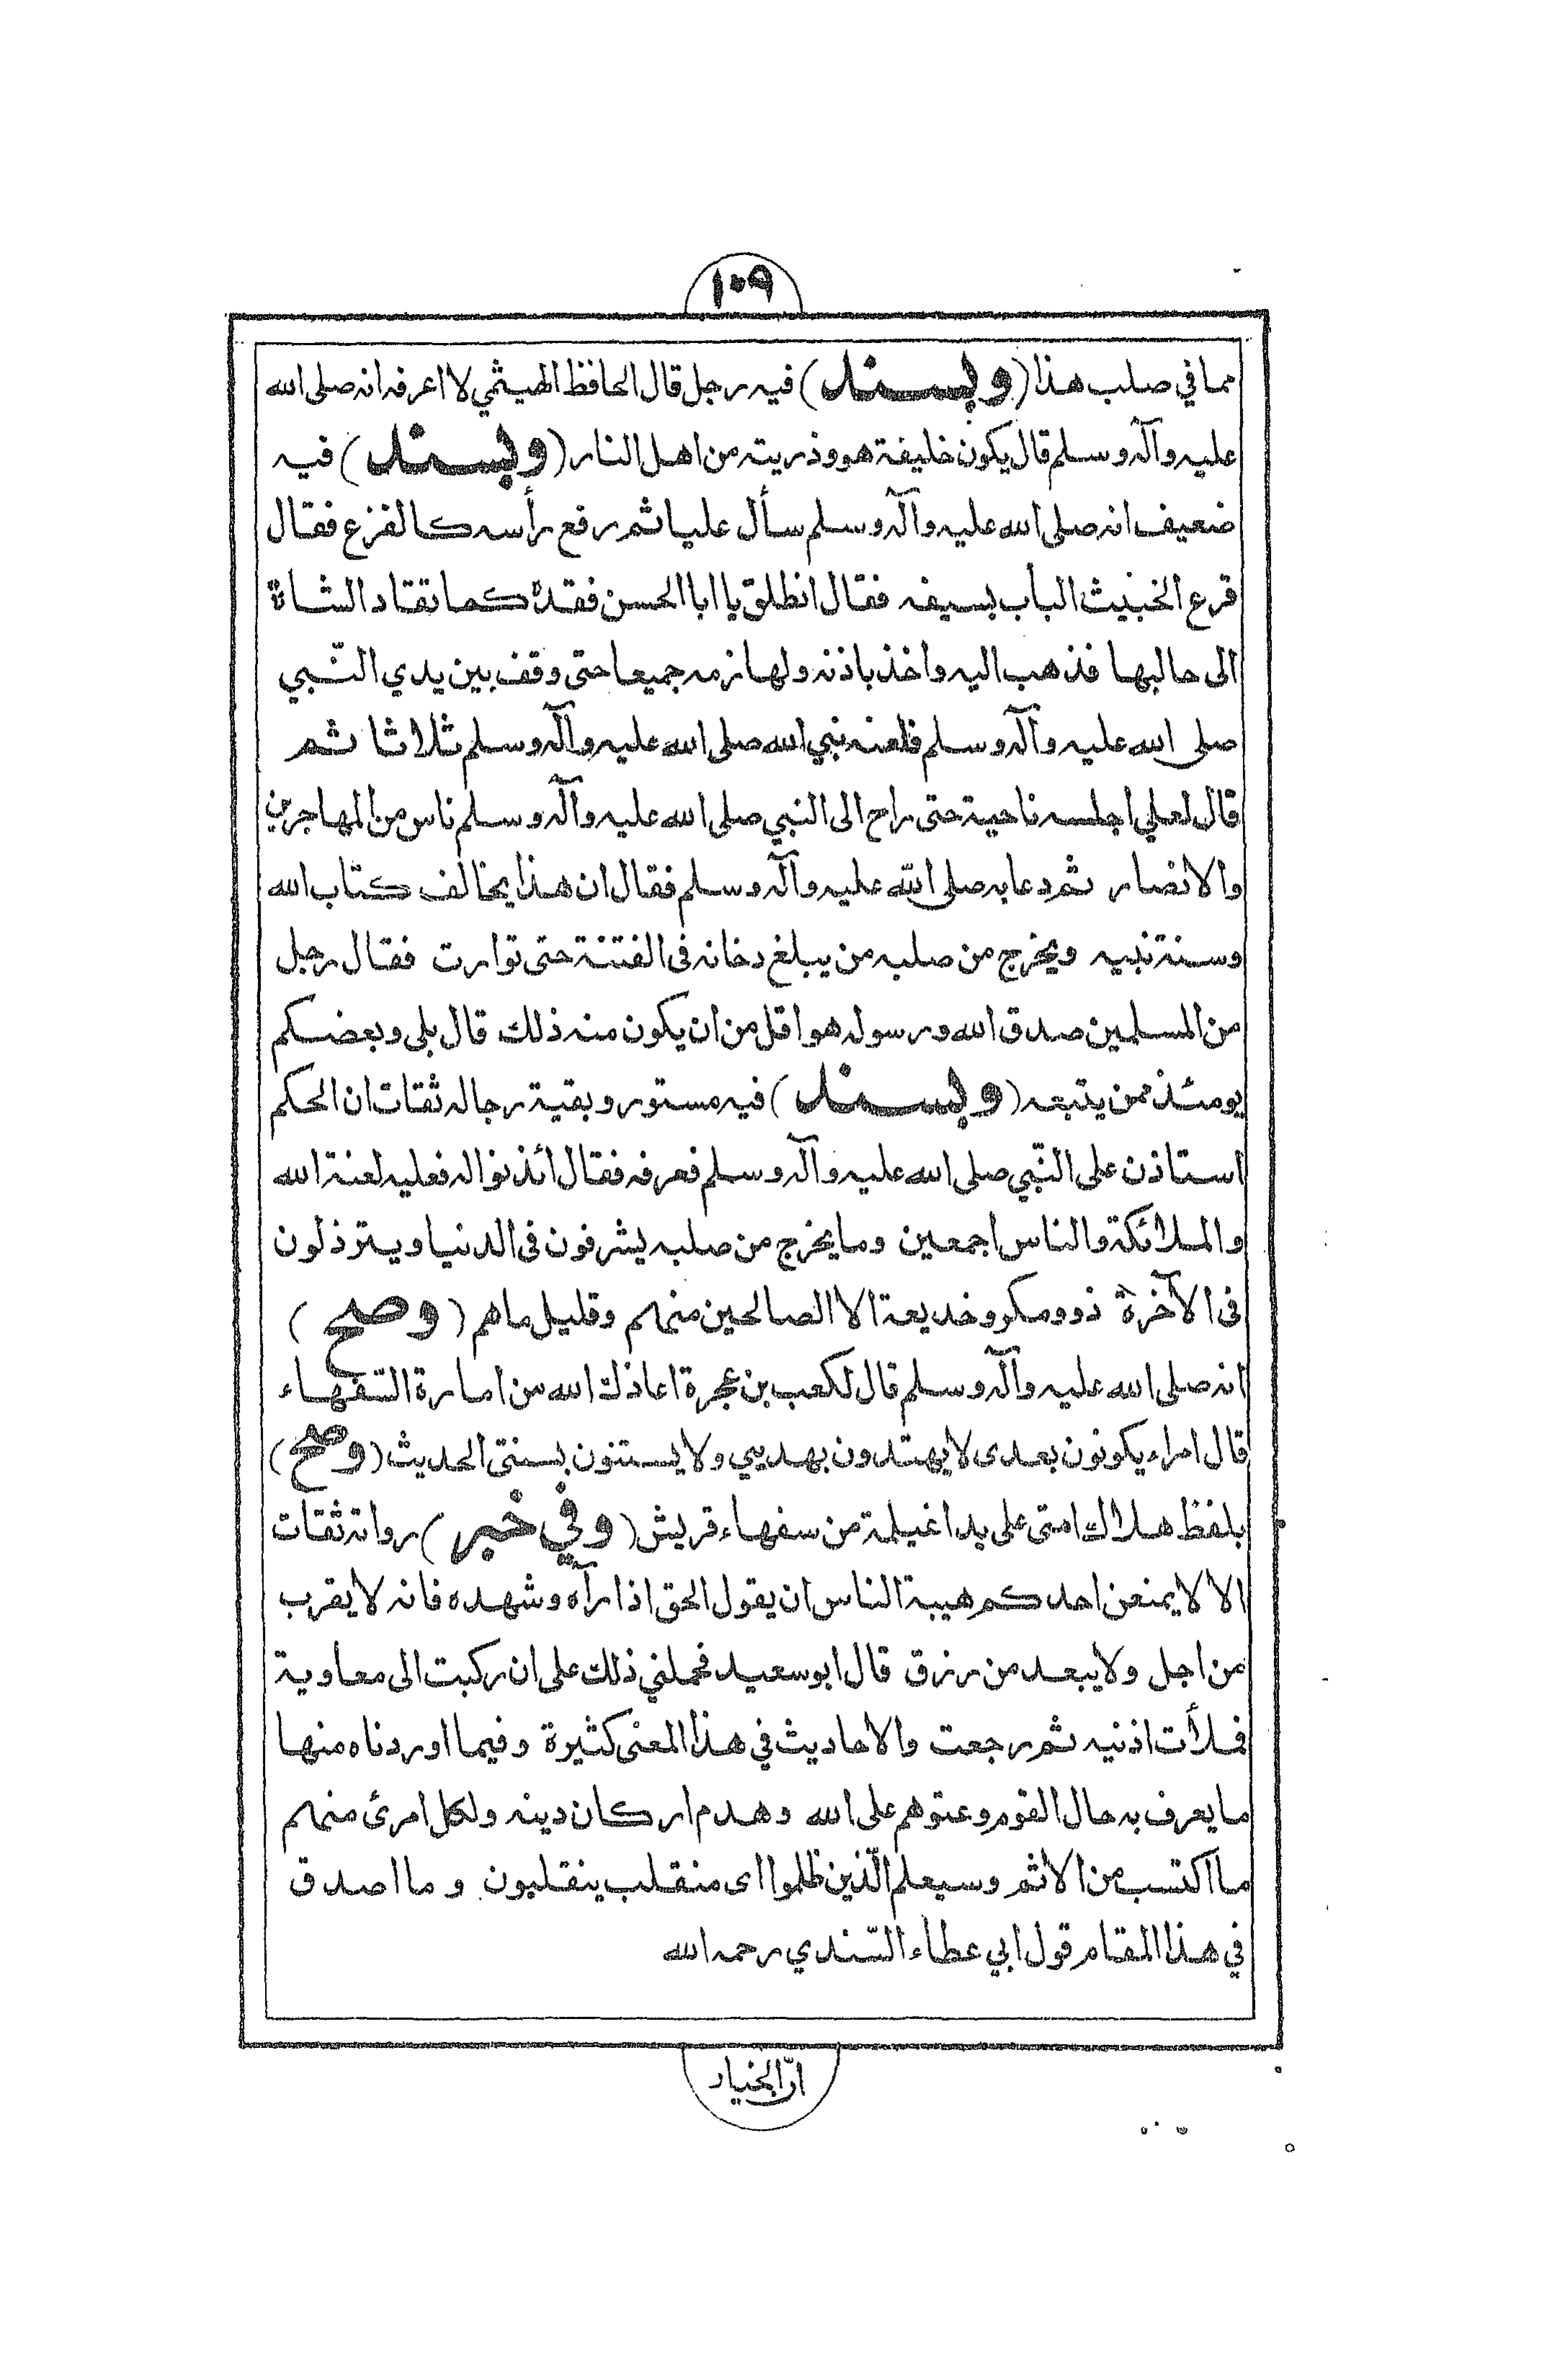 ١٠٩
مما في صلب هذا (وبسند) فيه رجل قال الحافظ الهيثمي لا اعرفه انه صلى الله
عليه وآله وسلم قال يكون خليفة هو وذريته من اهل النار (وبسند) فيه
ضعيف انه صلى الله عليه وآله وسلم سأل عليا ثم رفع رأسه كالفزع فقال
قرع الخبيث الباب بسيفه فقال انطلق يا ابا الحسن فقده كما تقاد الشاة
الى حالبها فذهب اليه واخذ باذنه ولهازمه جميعا حتى وقف بين يدي النّبي
صلى الله عليه وآله وسلم فلعنه نبي الله صلى الله عليه وآله وسلم ثلاثا ثم
قال لعلي اجلسه ناحية حتى راح الى النبي صلى الله عليه وآله وسلم ناس من المهاجرين
والانصار ثم دعا به صلى الله عليه وآله وسلم فقال ان هذا يخالف كتاب الله
وسنة نبيه ويخرج من صلبه من يبلغ دخانه فى الفتنة حتى توارت فقال رجل
من المسلمين صدق الله ورسوله هو اقل من ان يكون منه ذلك قال بلى وبعضكم
يومئذ ممن يتبعه (وبسند) فيه مستور وبقية رجاله ثقات ان الحكم
استاذن على النّبي صلى الله عليه وآله وسلم فعرفه فقال ائذنوا له فعليه لعنة الله
والملائكة والناس اجمعين وما يخرج من صلبه يشرفون فى الدنيا ويترذلون
فى الآخرة ذوو مكر وخديعة الا الصالحين منهم وقليل ما هم (وصح)
انه صلى الله عليه وآله وسلم قال لكعب بن عجرة اعاذك الله من امارة السّفهاء
قال امراء يكونون بعدى لا يهتدون بهديي ولا يستنون بسنتى الحديث (وصح)
بلفظ هلاك امتى على يد اغيلمة من سفهاء قريش (وفي خبر) رواته ثقات
الا لا يمنعن احدكم هيبة الناس ان يقول الحق اذا رآه وشهده فانه لا يقرب
من اجل ولا يبعد من رزق قال ابو سعيد فحملني ذلك على ان ركبت الى معاوية
فلأت اذنيه ثم رجعت والاحاديث في هذا المعنى كثيرة وفيما اوردناه منها
ما يعرف به حال القوم وعتوهم على الله وهدم اركان دينه ولكل امرئ منهم
ما اكتسب من الاثم وسيعلم الّذين ظلموا اى منقلب ينقلبون وما اصدق
في هذا المقام قول ابي عطاء السّندي رحمه الله
انّ الخيار